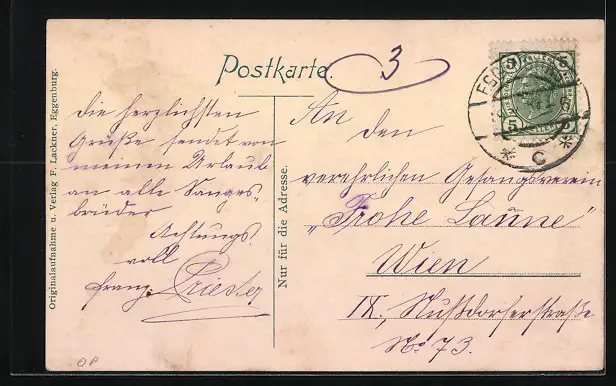 Originalaufnahme u. Verlag F. Lackner, Eggenburg.
Postkarte.
3
die herzlichsten
Grüße sendet von
meinen Urlaub
an alle Sanges-
brüder
Achtungs
voll
Franz Priester
Nur für die Adresse.
An
den
verehrlichen Gesangsverein
„Frohe Laune"
Wien
IX., Nußdorferstraße
No 73.
5 5
5
EGG
* C *
OP